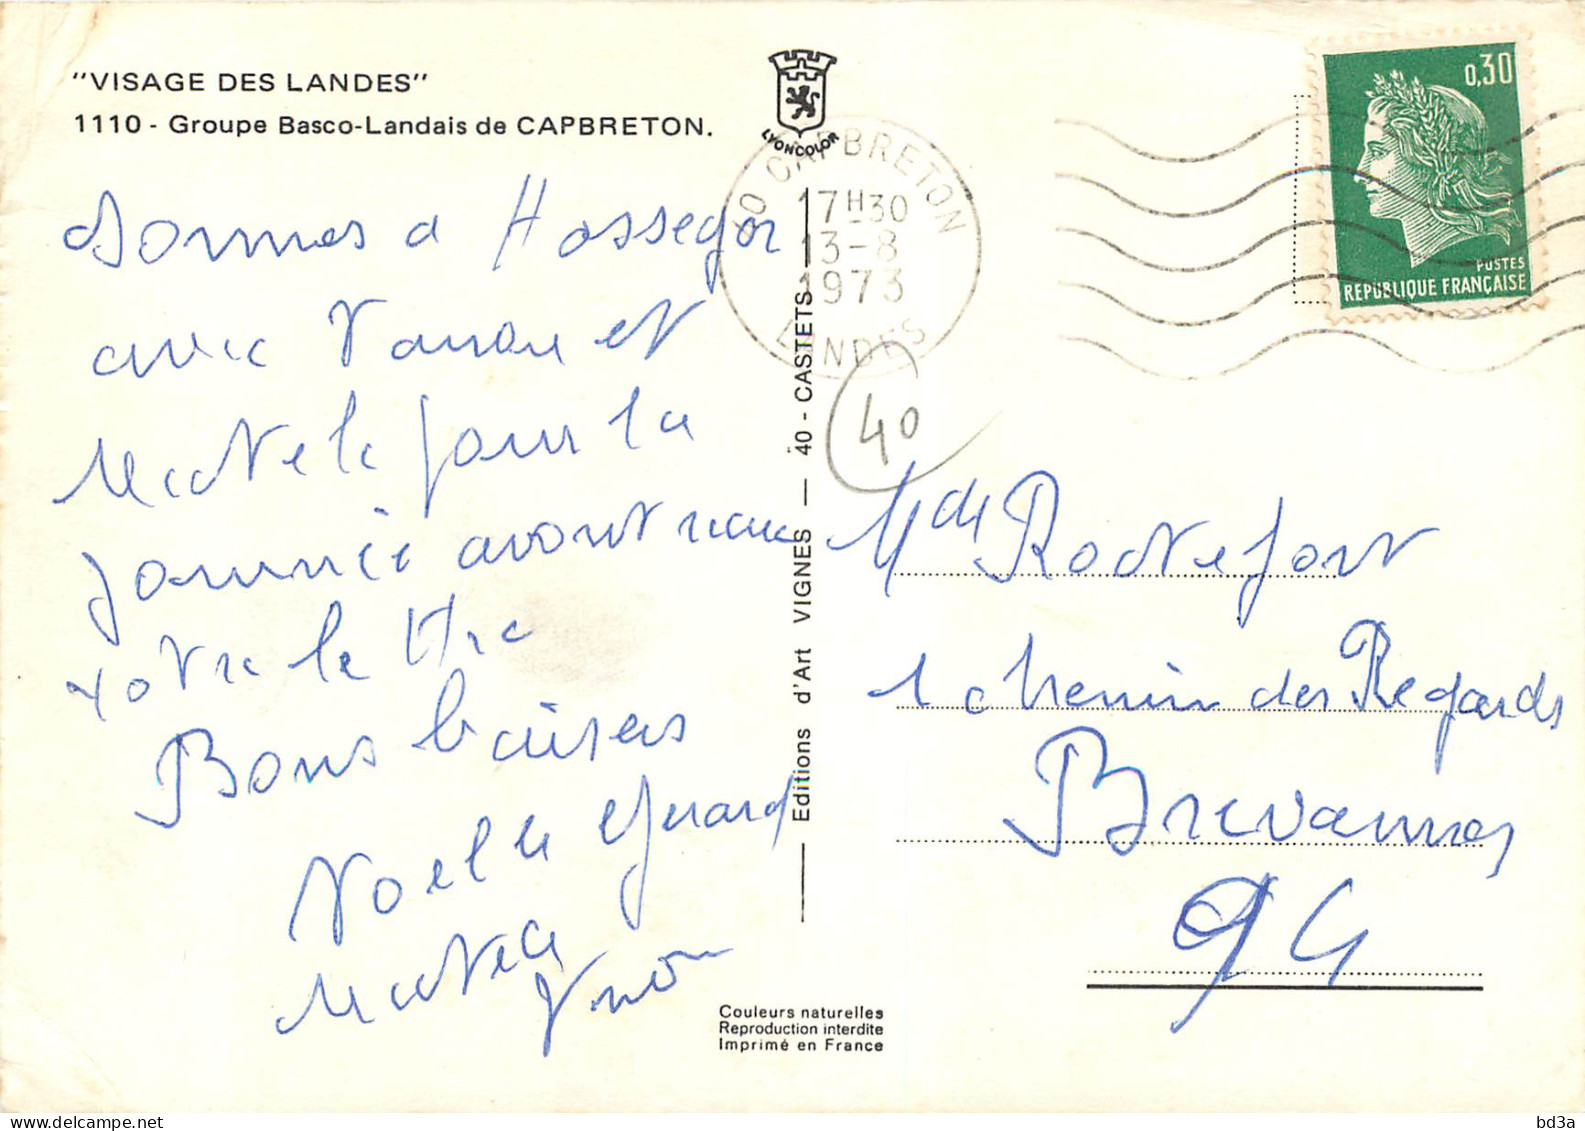 "VISAGE DES LANDES"
1110 - Groupe Basco-Landais de CAPBRETON.
LYONCOLOR
40 CAPBRETON
17H30
13-8
1973
LANDES
0,30
POSTES
REPUBLIQUE FRANÇAISE
sommes a Hossegor
avec et
Michele pour la
journée avons
votre lettre
Bons baisers
Noelle Gerard
Michele
Yvon
Editions d'Art VIGNES — 40 - CASTETS
40
Mde Rochefort
1 chemin des Regards
Brevannes
94
Couleurs naturelles
Reproduction interdite
Imprimé en France
bd3a